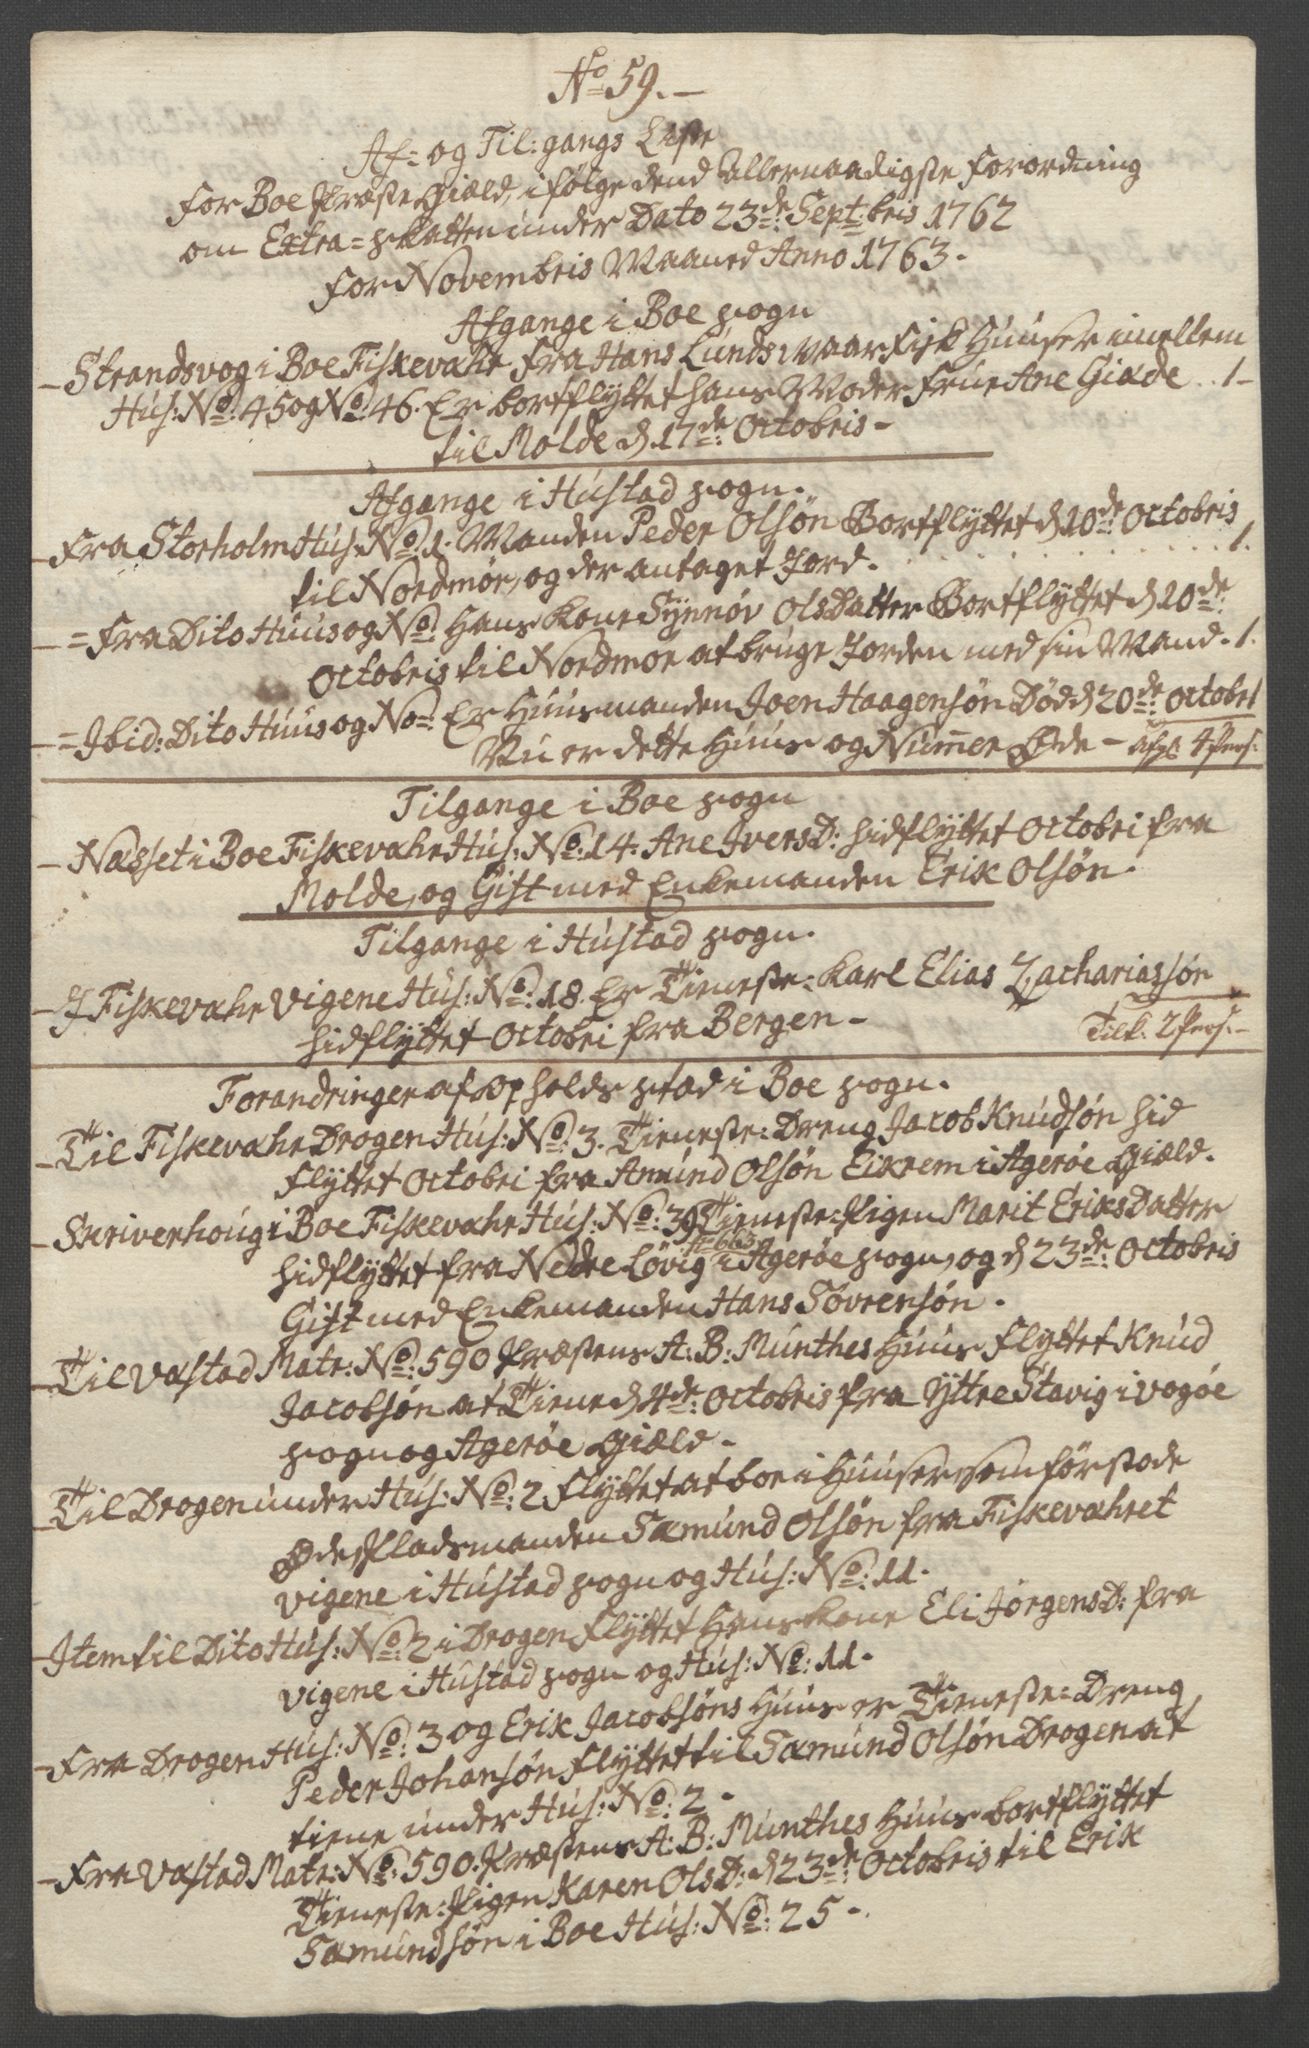 No 59.-
Af- og Til-gangs Liste
for Boe Præste Giæld, i følge dend Allernaadigste Forordning
om Extra-skatten under Dato 23de Sept:bris 1762
for Novembris Maaned Anno 1763.
Afgange i Boe sogn
- Strandsvog i Boe Fiskevahr fra Hans Lunds Huuser imellem
Hus: No: 45 og No: 46. Er bortflyttet hans Moder Frue Ane Giæde .. 1-
til Molde d. 17de Octobris-
Afgange i Hustad sogn.
- Fra Storholm Hus: No: 1. Manden Peder Olsøn Bortflyttet d. 10de Octobris
til Nordmør, og der antaget Jord. . . . . 1.
- = Fra Dito Huus og No: Hans Kone Synnøv Olsdatter Bortflyttet d. 10de
Octobris til Nordmør at bruge Jorden med sin Mand. 1.
- = Ibid: Dito Huus og No: Er Huusmanden Joen Haagensøn Død d. 20de Octobr 1
Nu er dette Huus og Nummer Øde - Afg: 4 Pers:
Tilgange i Boe sogn
- Næsset i Boe Fiskevahr Hus: No: 14. Ane IversD: hidflyttet Octobri fra
Molde, og Gift med Enkemanden Erik Olsøn.
Tilgange i Hustad sogn.
- I Fiskevahr Vigene Hus: No: 18. Er Tieneste-Karl Elias Zachariassøn
hidflyttet Octobri fra Bergen-
Tilk: 2 Pers:-
Forandringer af Opholds stæd i Boe sogn.
- Til Fiskevahr Drogen Hus: No: 3. Tieneste-Dreng Jacob Knudsøn hid
flyttet Octobri fra Amund Olsøn Eikrem i Agerøe Giæld.
- Skriverhoug i Boe Fiskevahr Hus: No: 39 Tieneste-Pigen Marit Eriksdatter
hidflyttet fra Nedre Løvig No 663 i Agerøe sogn, og d. 23de Octobris
Gift med Enkemanden Hans Sørensøn.
- Til Vastad Matr: No: 590 Præstens A: B: Munthes Huus flyttet Knud
Jacobsøn at Tiene d. 4de Octobris fra Yttre Stavig i Vogøe
sogn og Agerøe Giæld-
- Til Drogen under Hus: No: 2 flyttet at boe i Huuser som før stode
Øde, Pladsmanden Sæmund Olsøn fra Fiskevahret
Vigene i Hustad sogn og Hus: No: 11.
- Item til Dito Hus: No: 2 i Drogen flyttet Hans Kone Eli JørgensD: fra
Vigene i Hustad sogn og Hus: No: 11.
- Fra Drogen Hus: No: 3 og Erik Jacobsøns Huus er Tieneste-Dreng
Peder Johansøn flyttet til Sæmund Olsøn Drogen at
tiene under Hus: No: 2-
- Fra Vastad Matr: No: 590. Præstens A: B: Munthes Huus bortflyttet
Tieneste-Pigen Karen OlsD: d. 23de Octobris til Erik
Sæmundsøn i Boe Hus: No: 25-